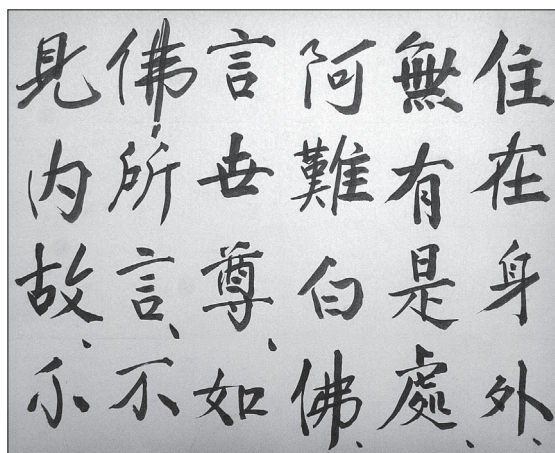 住在身外、
無有是處、
阿難白佛、
言世尊、如
佛所言、不
見內故、不